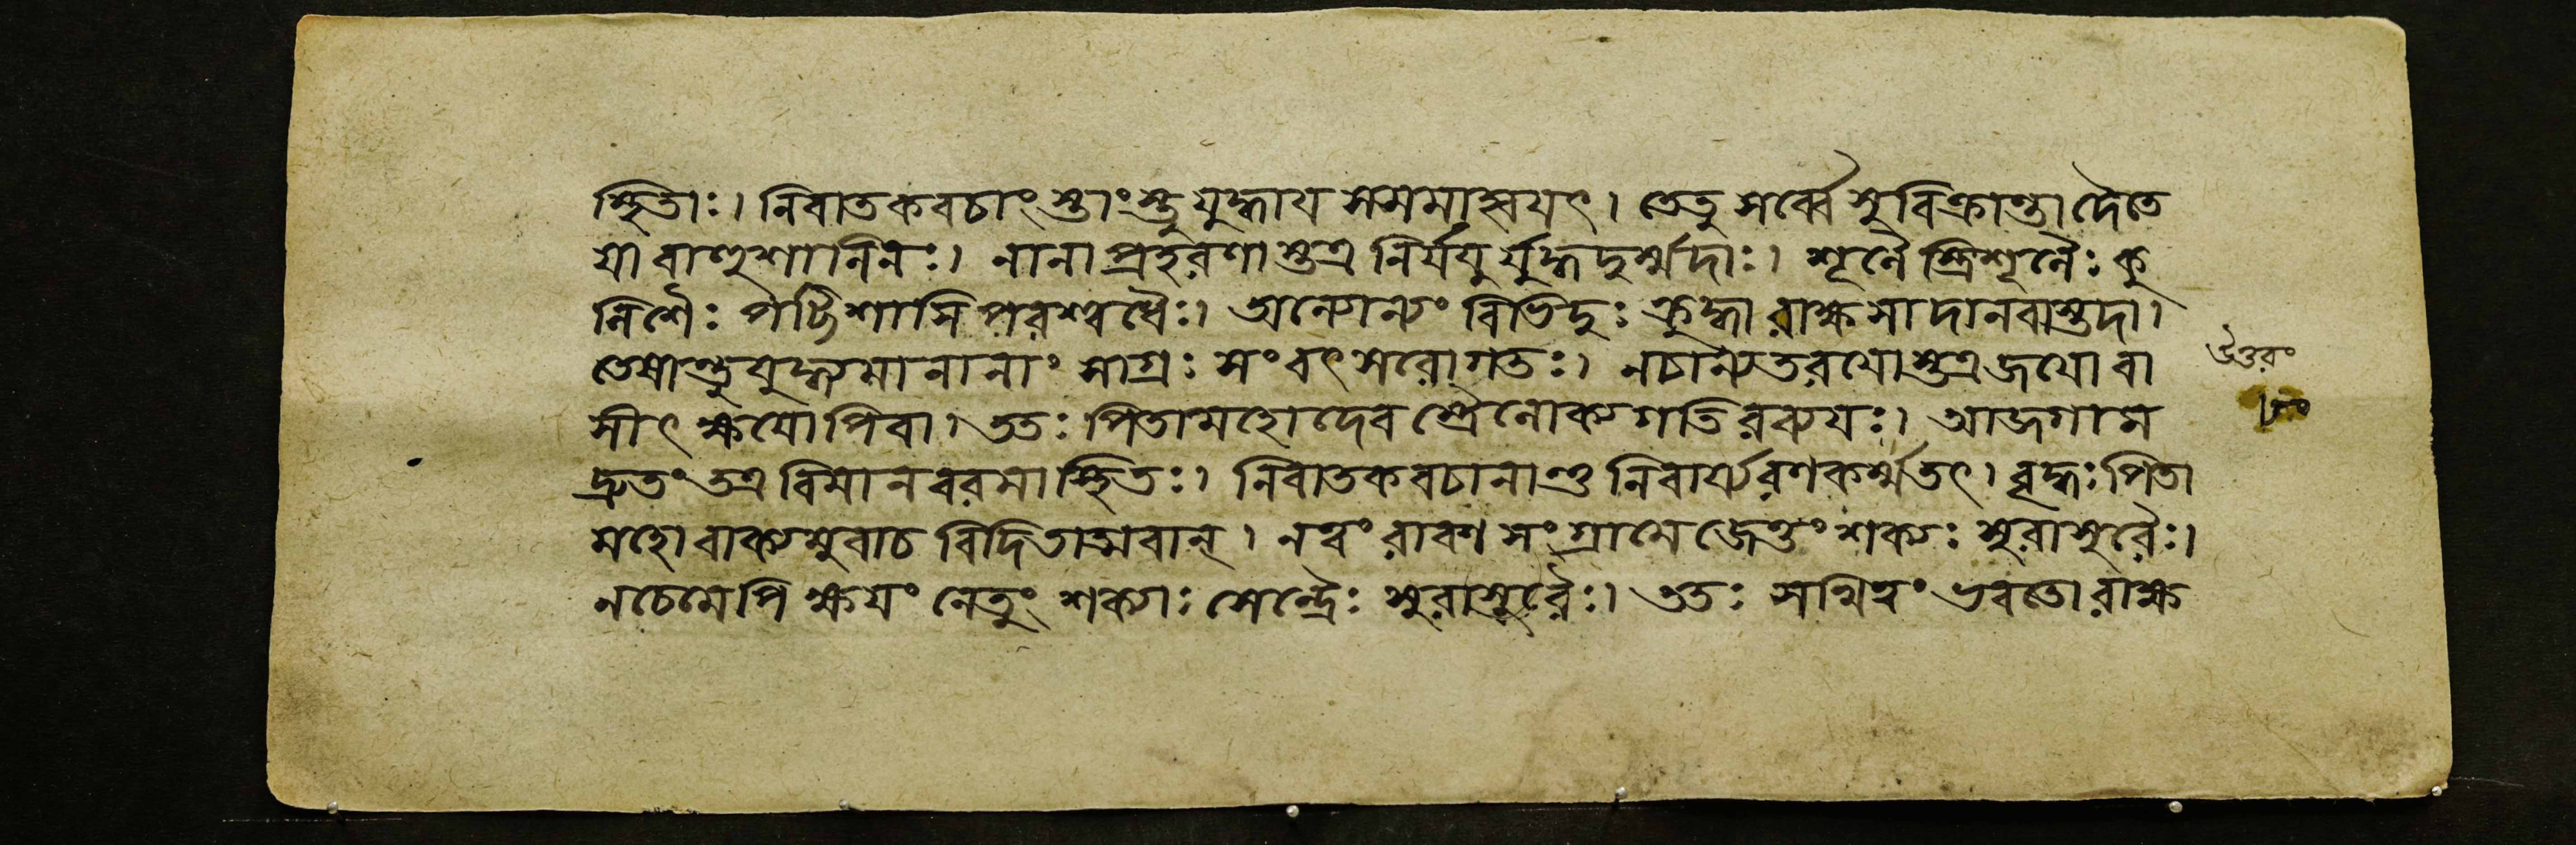 স্থিতাঃ। নিবাতকবচাংস্তাংস্তু যুদ্ধায় সসমাহ্বয়ৎ। তেতু সর্ব্বে সুবিক্রান্তা দৈতে
যা বাণুশালিনঃ। নানাপ্রহরণাস্তত্র নির্যযুর্যুদ্ধদুর্ম্মদাঃ। শূলৈস্ত্রিশূলৈঃ কু
লিশৈঃ পট্টিশাসিপরশ্বধৈঃ। অন্যোন্যং বিভিদুঃ ক্রুদ্ধা রাক্ষসা দানবাস্তদা।
তেষান্তু যুদ্ধ্যমানানাং সাগ্রঃ সংবৎসরোগতঃ। নচান্যতরয়োস্তত্র জয়ো বা
সীৎ ক্ষয়োপিবা। ততঃ পিতামহোদেবস্ত্রৈলোক্যগতিরব্যয়ঃ। আজগাম
দ্রুতং তত্র বিমানবরমাস্থিতঃ। নিবাতকবচানান্তু নিবার্য্য রণকর্ম্মতৎ। বৃদ্ধঃ পিতা
মহোবাক্যমুবাচ বিদিতাত্মবান্। নত্বং রাবণ সংগ্রামে জেতুং শক্যঃ সুরাসুরৈঃ।
নচেমেপি ক্ষয়ং নেতুং শক্যাঃ সেন্দ্রৈঃ সুরাসুরৈঃ। ততঃ সখিত্বং ভবতো রাক্ষ
উত্তরং